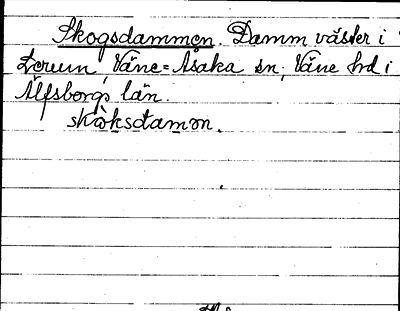 Skogsdammen. Damm väster i
Lerum, Väne-Åsaka sn, Väne hd i
Älfsborgs län.
skòksdamən.